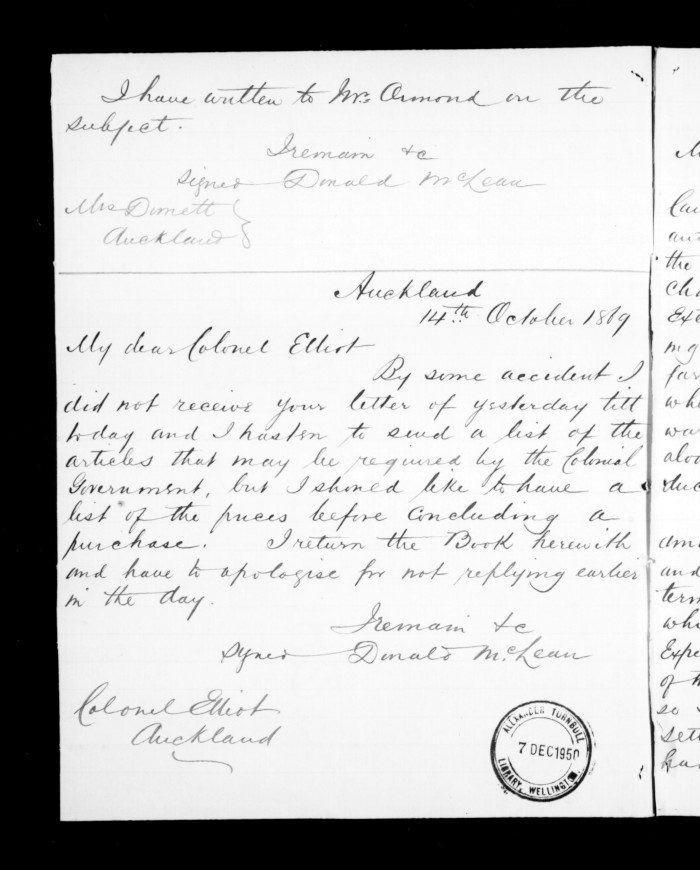 I have written to Mr. Ormond on the
subject.
I remain &c
signed Donald McLean
Mrs Domett
Auckland
Auckland
14th October 1869
My dear Colonel Elliot
By some accident I
did not receive your letter of yesterday till
today and I hasten to send a list of the
articles that may be required by the Colonial
Government, but I should like to have a
list of the prices before concluding a
purchase. I return the Book herewith
and have to apologise for not replying earlier
in the day.
I remain &c
signed Donald McLean
Colonel Elliot
Auckland
ALEXANDER TURNBULL
7 DEC 1950
LIBRARY, WELLINGTON
the
and
of
so